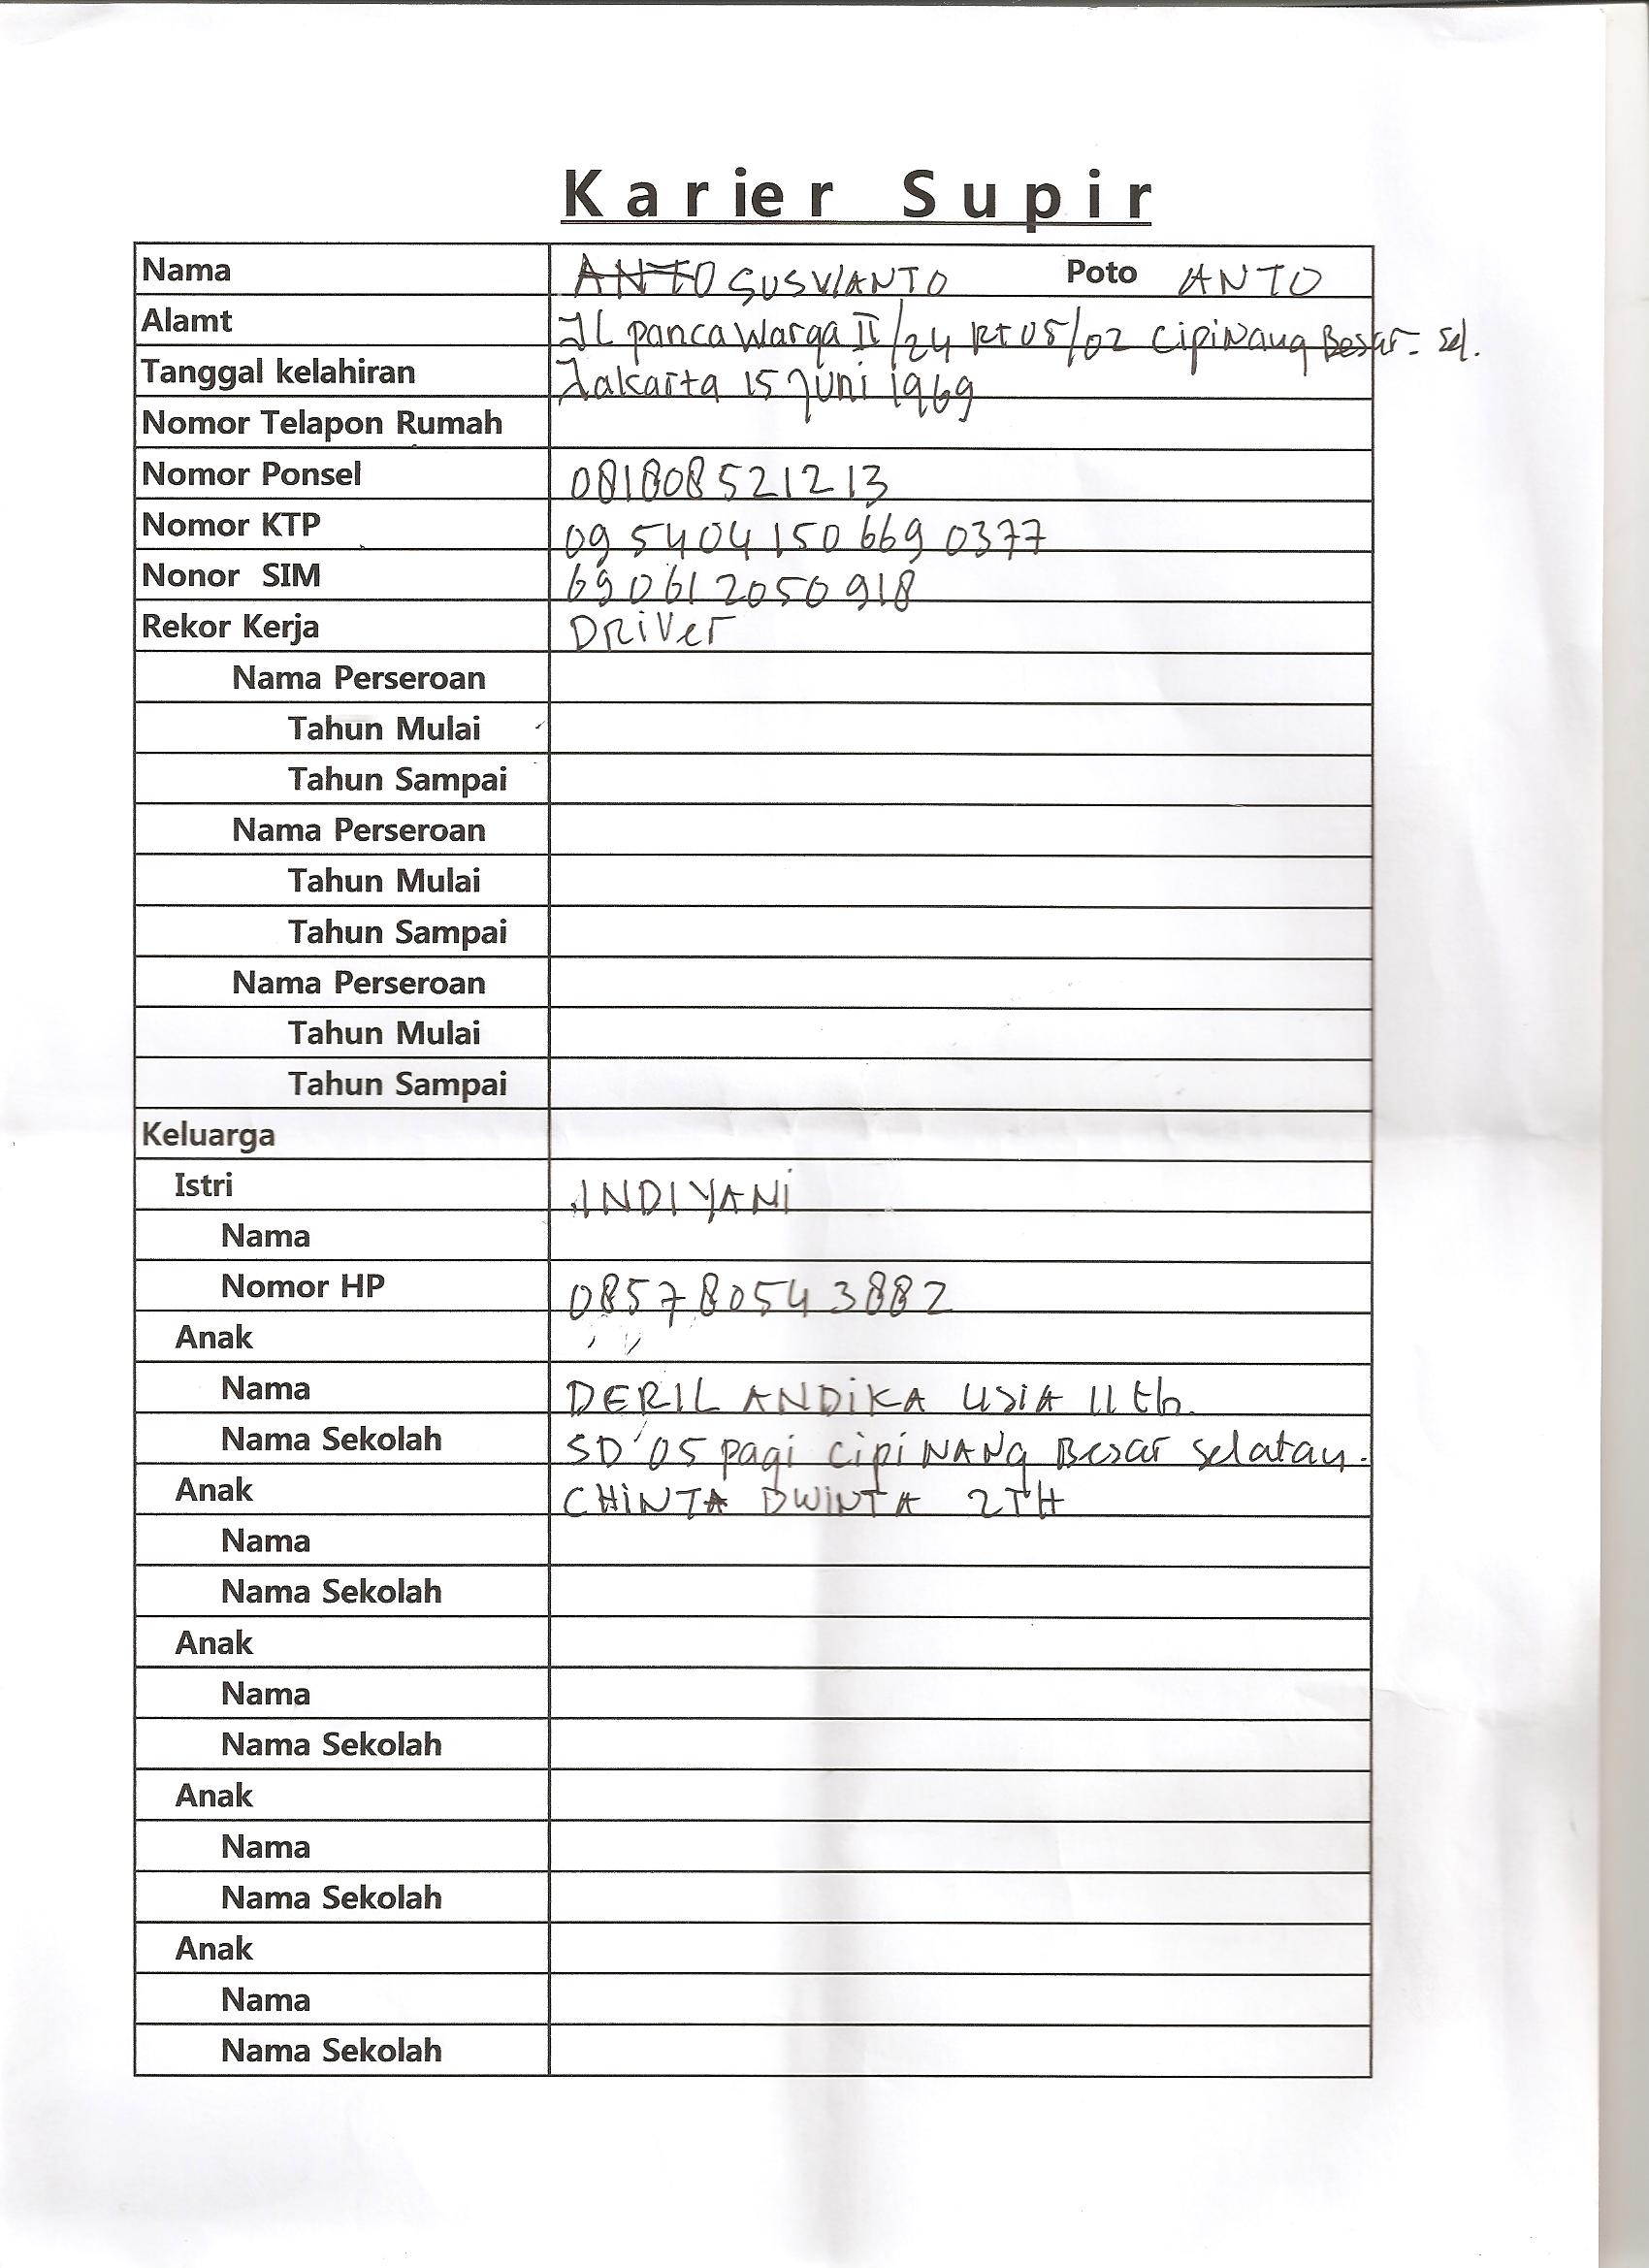 Karier Supir
Nama ANTO SUSVIANTO Poto ANTO
Alamt JL panca warga II/24 Rt 05/02 cipiNang Besar-sel.
Tanggal kelahiran Jakarta 15 Juni 1969
Nomor Telapon Rumah
Nomor Ponsel 081808521213
Nomor KTP 09 5404 150669 0377
Nonor SIM 690612050918
Rekor Kerja DRiVer
Nama Perseroan
Tahun Mulai
Tahun Sampai
Nama Perseroan
Tahun Mulai
Tahun Sampai
Nama Perseroan
Tahun Mulai
Tahun Sampai
Keluarga
Istri INDIYANi
Nama
Nomor HP 085780543882
Anak
Nama DERIL ANDiKA USiA 11 th.
Nama Sekolah SD 05 pagi cipiNANg Besar selatan.
Anak CHiNTA DWiNTA 2TH
Nama
Nama Sekolah
Anak
Nama
Nama Sekolah
Anak
Nama
Nama Sekolah
Anak
Nama
Nama Sekolah